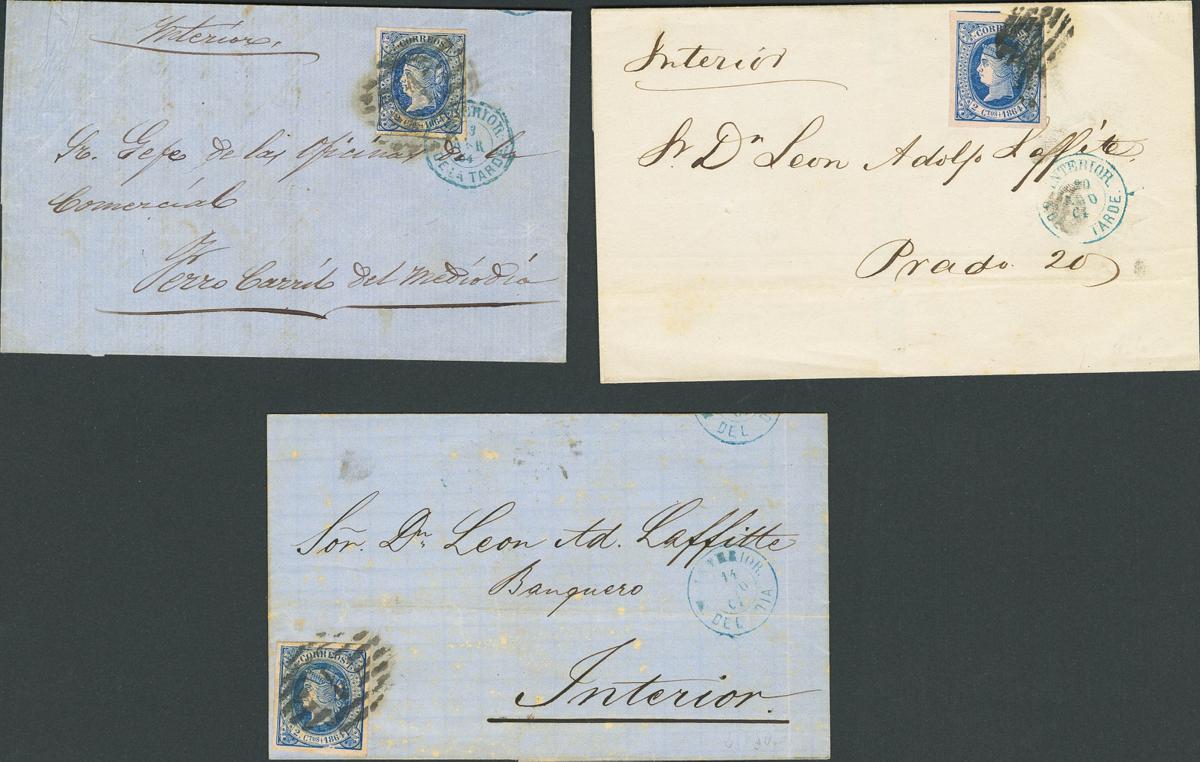 Interior.
CORREOS
2 Ctos 1864
INTERIOR.
3
DE LA TARDE
Sr. Gefe de las Oficinas de la
Comercial
Ferro Carril del Mediodia
Interior
CORREOS
2 Ctos 1864
Sr. Dn Leon Adolfo Laffite.
INTERIOR.
20
TARDE
Prado 20
DEL
Sor. Dn Leon Ad. Laffitte
Banquero
INTERIOR.
14
DEL DIA
CORREOS
2 Ctos 1864
Interior.